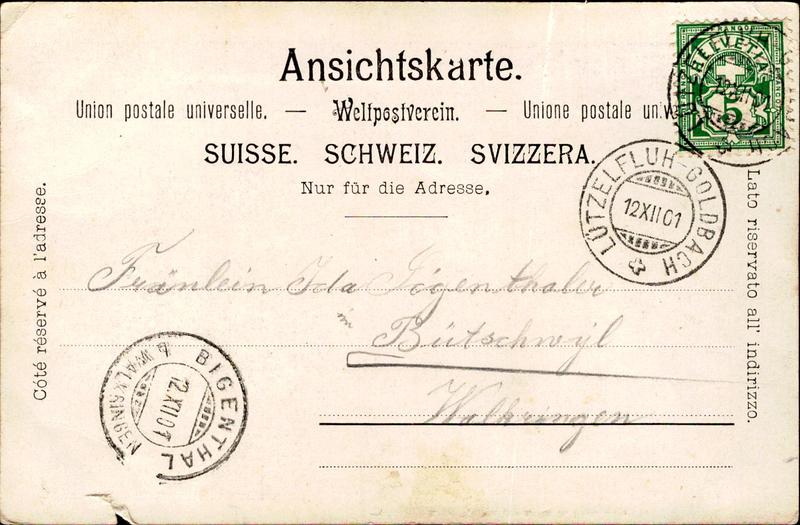 Ansichtskarte.
Union postale universelle. — Weltpostverein. — Unione postale un
SUISSE. SCHWEIZ. SVIZZERA.
Nur für die Adresse.
HELVETIA
5
LÜTZELFLUH-GOLDBACH
12XII01
Côté réservé à l'adresse.
Lato riservato all' indirizzo.
Fräulein Ida Jögenthaler
in
Bütschwyl
Walkringen
BIGENTHAL
b. WALKRINGEN
12XII01